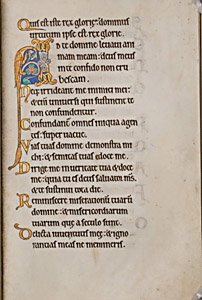 Quis est iste rex glorie: dominus
uirtutum ipse est rex glorie.
Ad te domine leuaui ani
mam meam: deus meus
in te confido non eru
bescam.
Neq; irrideant me inimici mei:
etenim uniuersi qui sustinent te
non confundentur.
Confundant omnes iniqua agen
tes: super uacue.
Vias tuas domine demonstra m
& semitas tuas edoce me.
Dirige me in ueritate tua & doce
me: quia tu es deus saluator m
& te sustinui tota die.
Reminiscere miserationum tuarum
domine: & misericordiarum
tuarum que a seculo sunt.
Delicta iuuentutis mee: & igno
rantias meas ne memineris.